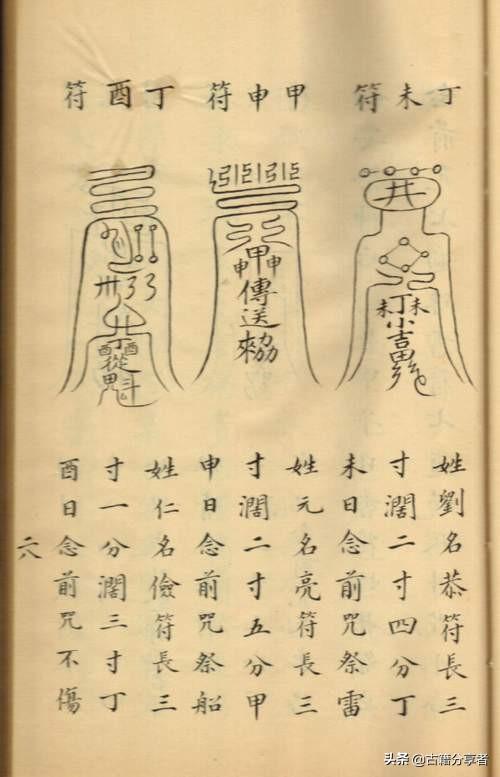 丁未符
井
丁未未
小吉
姓劉名恭符長三
寸濶二寸四分丁
未日念前咒祭雷
甲申符
甲申申
傳送
姓元名亮符長三
寸濶二寸五分甲
申日念前咒祭船
丁酉符
丁酉酉
從魁
姓仁名儉符長三
寸一分濶三寸丁
酉日念前咒不傷
六
头条 @古籍分享者